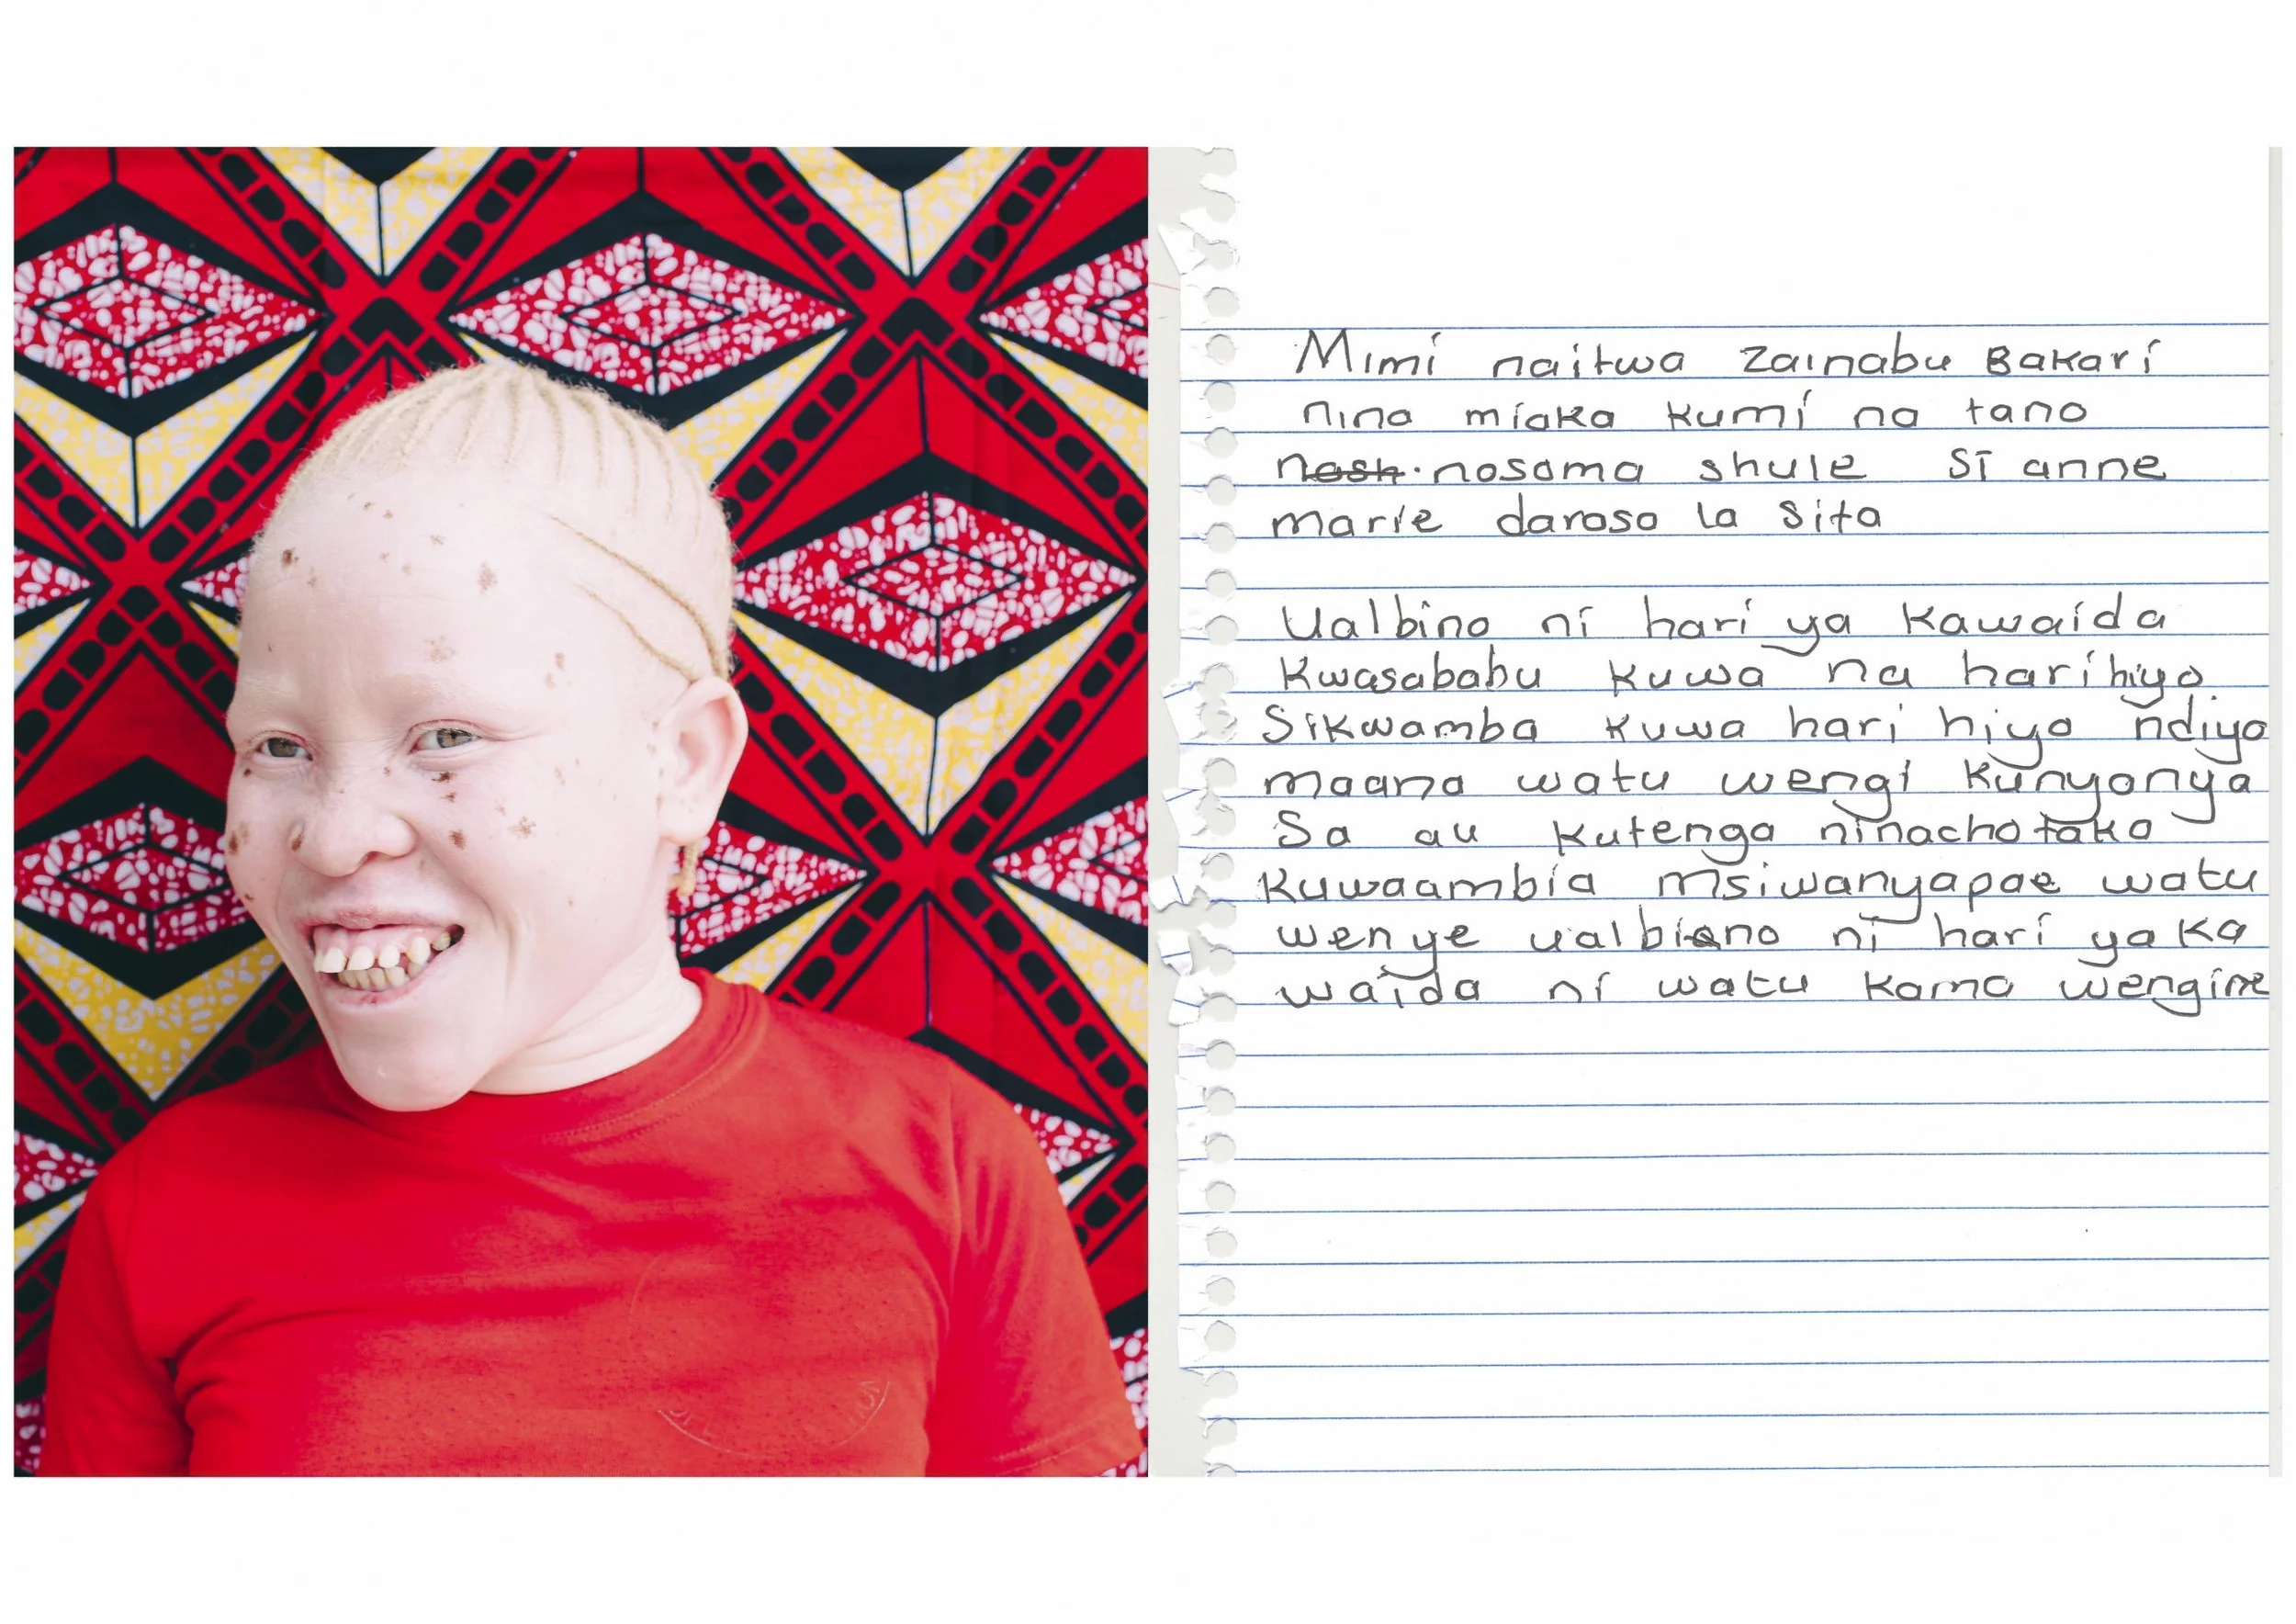 Mimi naitwa Zainabu Bakari
nina miaka kumi na tano
nosoma shule St anne
marie daraso la Sita
Ualbino ni hari ya kawaida
Kwasababu kuwa na hari hiyo
Sikwamba kuwa hari hiyo ndiyo
maana watu wengi kunyanya
Sa au kutenga ninachotaka
Kuwaambia msiwanyapae watu
wenye ualbiano ni hari ya ka
waida ni watu kama wengine